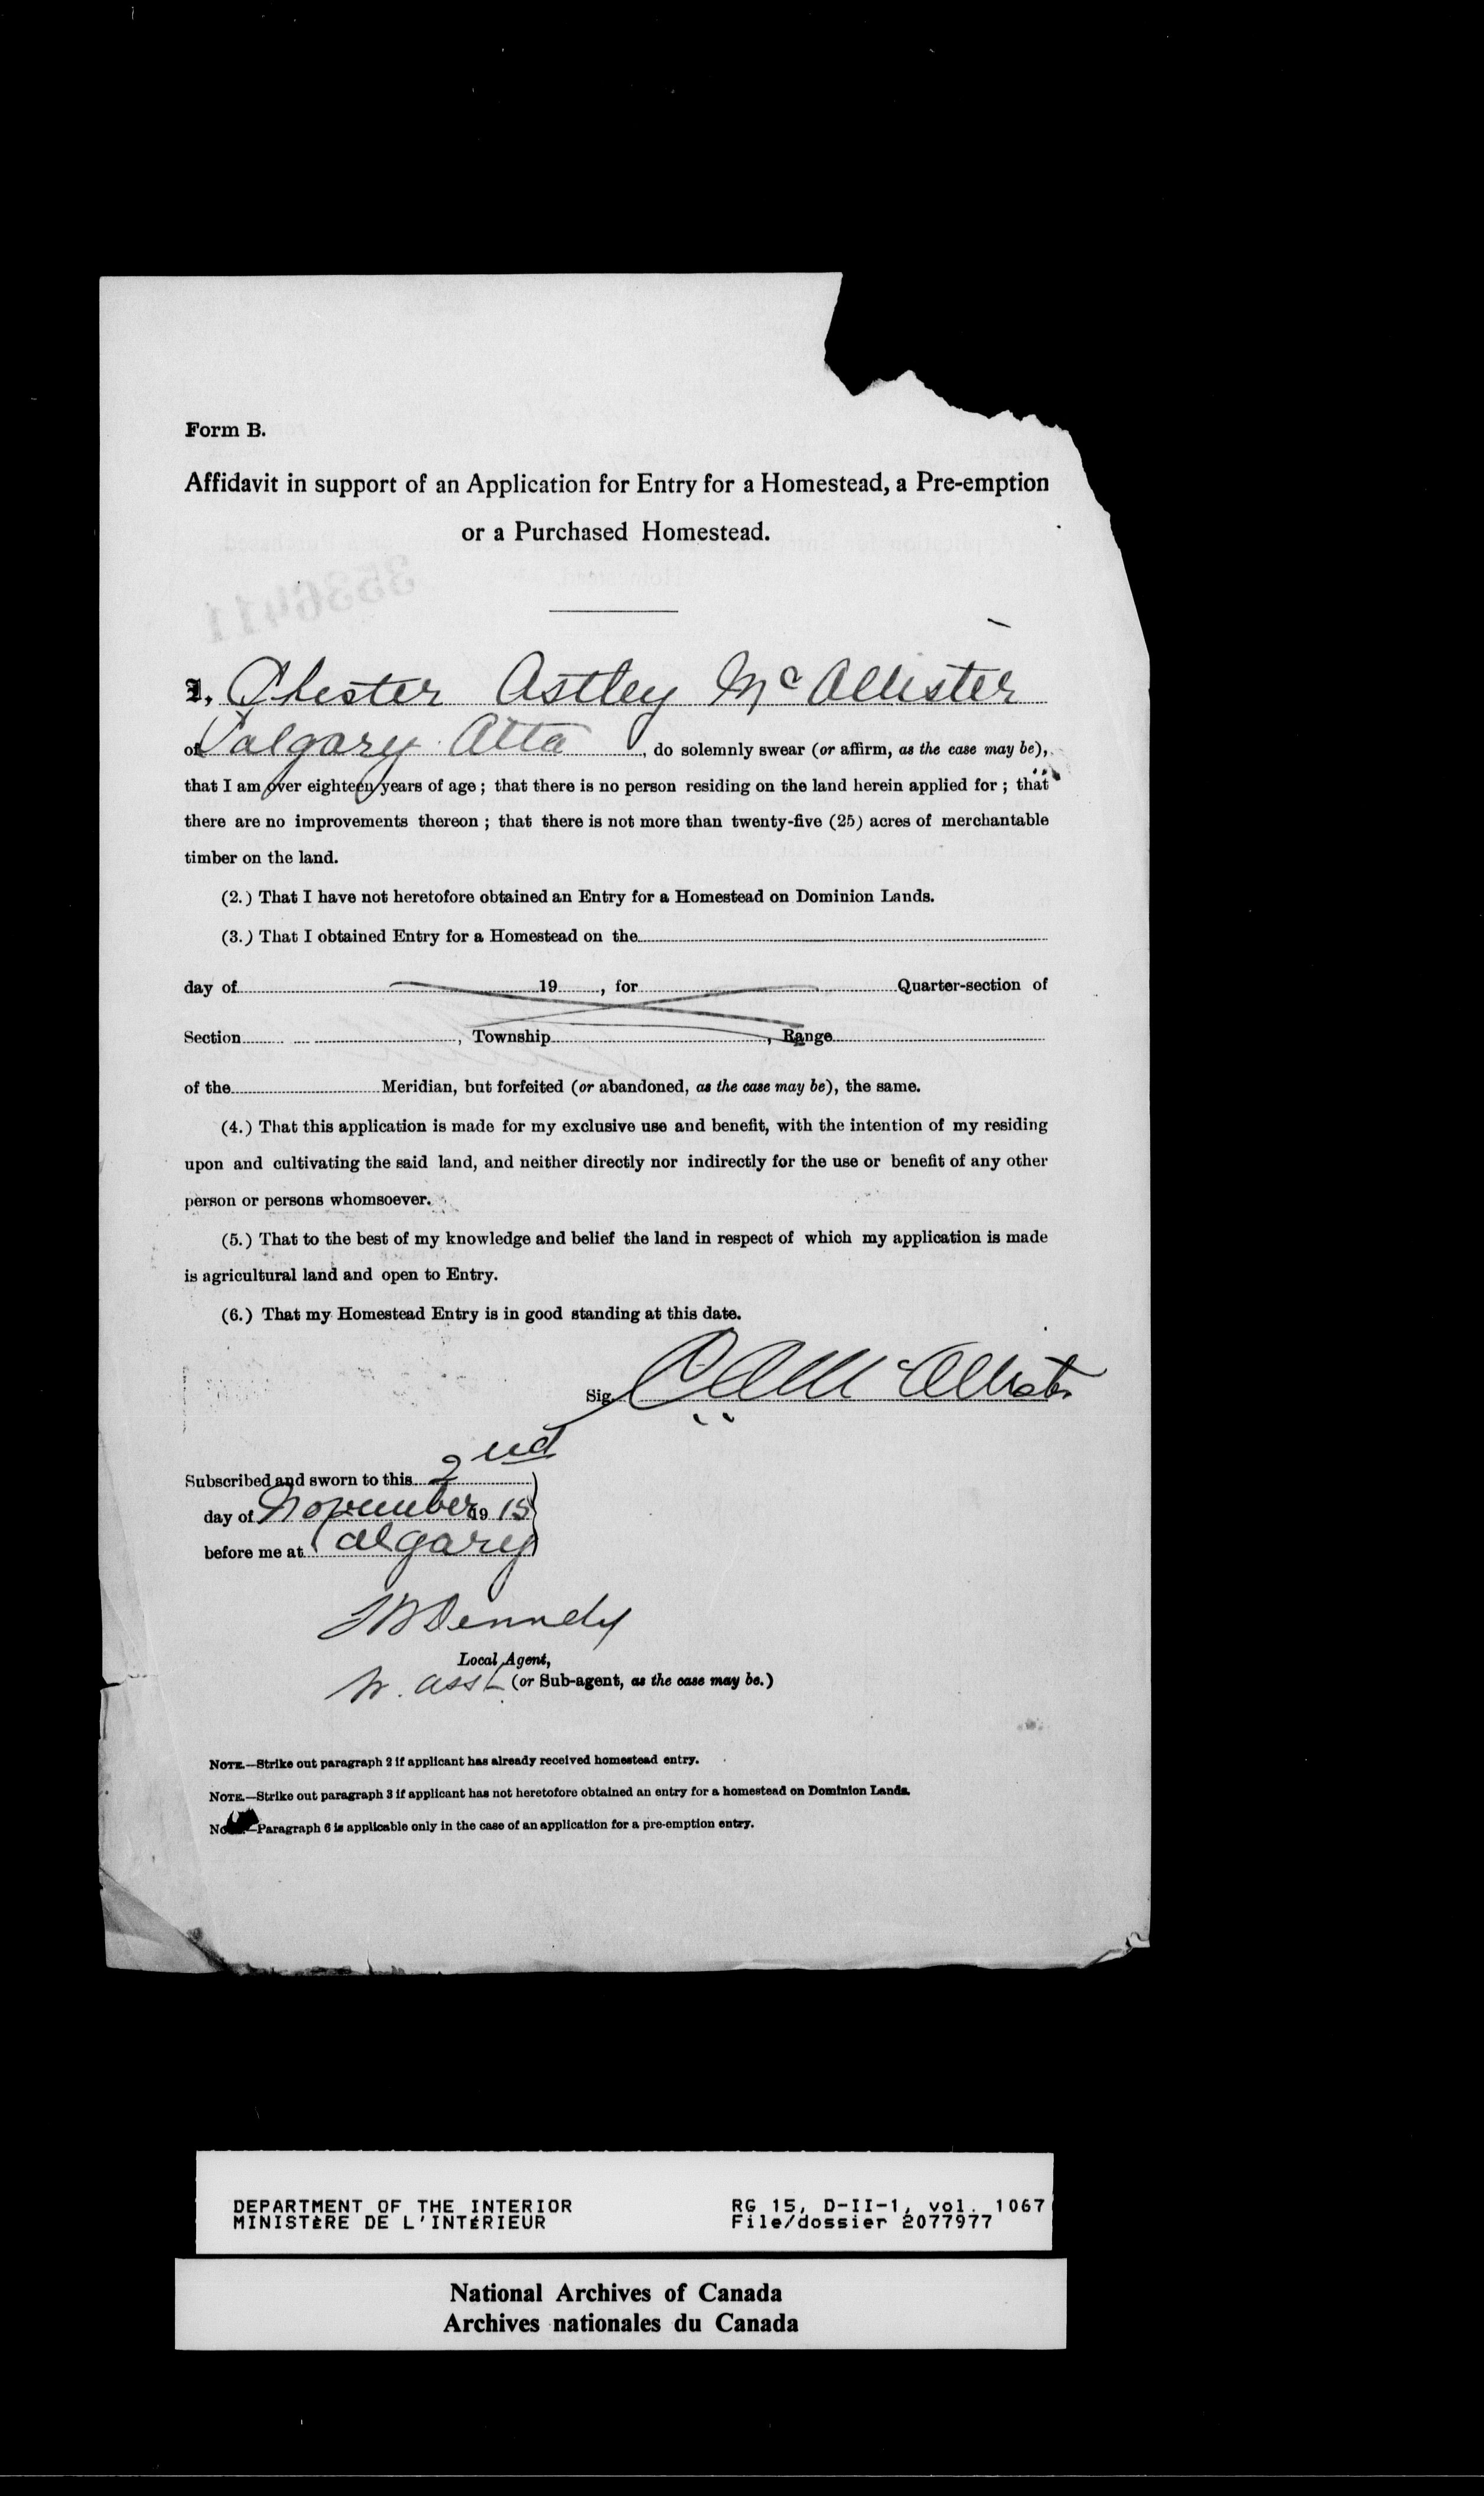 Form B.
Affidavit in support of an Application for Entry for a Homestead, a Pre-emption
or a Purchased Homestead.
I, Chester Astley McAllister
of Calgary Alta , do solemnly swear (or affirm, as the case may be),
that I am over eighteen years of age ; that there is no person residing on the land herein applied for ; that
there are no improvements thereon ; that there is not more than twenty-five (25) acres of merchantable
timber on the land.
(2.) That I have not heretofore obtained an Entry for a Homestead on Dominion Lands.
(3.) That I obtained Entry for a Homestead on the
day of 19 , for Quarter-section of
Section , Township , Range
of the Meridian, but forfeited (or abandoned, as the case may be), the same.
(4.) That this application is made for my exclusive use and benefit, with the intention of my residing
upon and cultivating the said land, and neither directly nor indirectly for the use or benefit of any other
person or persons whomsoever.
(5.) That to the best of my knowledge and belief the land in respect of which my application is made
is agricultural land and open to Entry.
(6.) That my Homestead Entry is in good standing at this date.
Sig. C A McAllister
Subscribed and sworn to this 2nd
day of November 1915
before me at Calgary
Local Agent,
(or Sub-agent, as the case may be.)
NOTE.—Strike out paragraph 2 if applicant has already received homestead entry.
NOTE.—Strike out paragraph 3 if applicant has not heretofore obtained an entry for a homestead on Dominion Lands.
NOTE.—Paragraph 6 is applicable only in the case of an application for a pre-emption entry.
DEPARTMENT OF THE INTERIOR RG 15, D-II-1, vol. 1067
MINISTÈRE DE L'INTÉRIEUR File/dossier 2077977
National Archives of Canada
Archives nationales du Canada